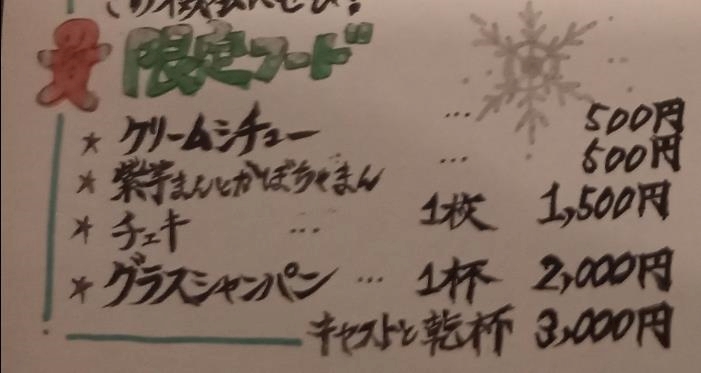 この機会にぜひ!
限定フード
★ クリームシチュー … 500円
★ 紫芋まんとかぼちゃまん … 500円
★ チェキ … 1枚 1,500円
★ グラスシャンパン … 1杯 2,000円
キャストと乾杯 3,000円